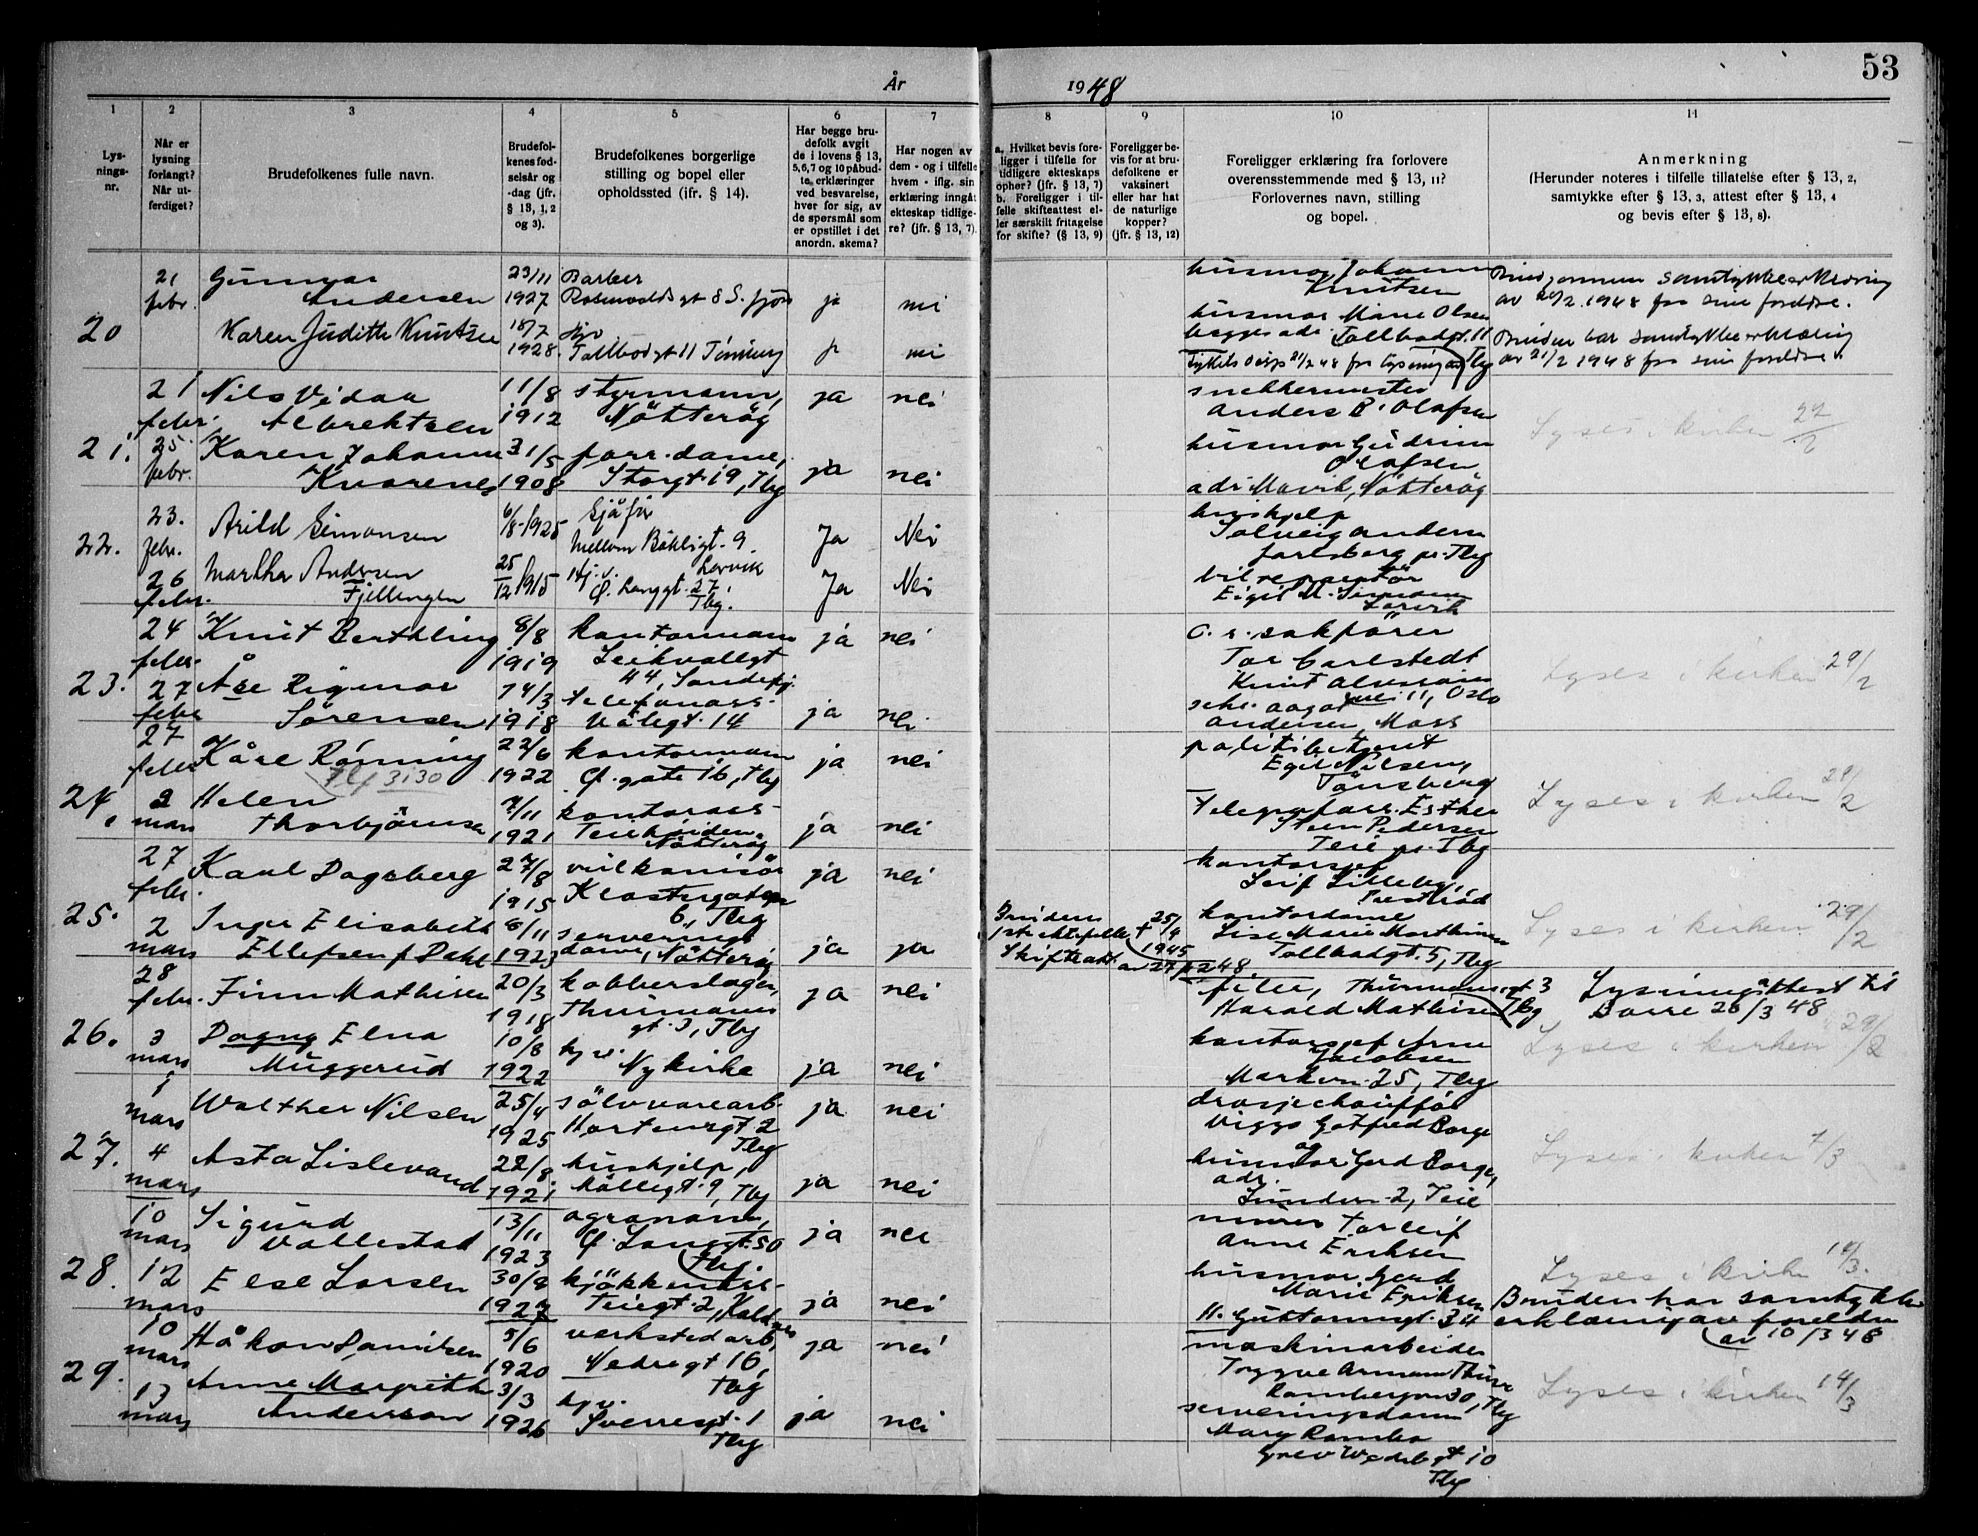 År 1948
53
1 2 3 4 5 6 7 8 9 10 11
Lys-
nings-
nr.
Når er
lysning
forlangt?
Når ut-
ferdiget?
Brudefolkenes fulle navn.
Brudefol-
kenes fød-
selsår og
-dag (jfr.
§ 13, 1, 2
og 3).
Brudefolkenes borgerlige
stilling og bopel eller
opholdssted (ifr. § 14).
Har begge bru-
defolk avgit
de i lovens § 13,
5,6,7 og 10 påbud-
te erklæringer
ved besvarelse,
hver for sig, av
de spørsmål som
er opstillet i det
anordn. skema?
Har nogen av
dem - og i tilfelle
hvem - iflg. sin
erklæring inngåt
ekteskap tidlige-
re? (jfr. § 13, 7).
a. Hvilket bevis fore-
ligger i tilfelle for
tidligere ekteskaps
ophør? (jfr. § 13, 7)
b. Foreligger i til-
felle skifteattest el-
ler særskilt fritagelse
for skifte? (§ 13, 9)
Foreligger be-
vis for at bru-
defolkene er
vaksinert
eller har hat
de naturlige
kopper?
(jfr. § 13, 12)
Foreligger erklæring fra forlovere
overensstemmende med § 13, 11?
Forlovernes navn, stilling
og bopel.
Anmerkning
(Herunder noteres i tilfelle tillatelse efter § 13, 2,
samtykke efter § 13, 3, attest efter § 13, 4
og bevis efter § 13, 8).
20
21 febr.
Gunnar
Andersen
23/11 1927
Barber
ja
nei
Karen Judith Knutsen
18/7 1928
Tollbodgt 11 Tønsberg
ja
nei
husmor Johanne
Knutsen
husmor Marie Olsen
begges adr. Tollbodgt. 11
Tbg
Brudgommen samtykkeerklæring
av 20/2 1948 fra sine foreldre.
Bruden har samtykkeerklæring
av 21/2 1948 fra sine foreldre.
21.
21 febr.
Nils Vidar
Albrektsen
11/8 1912
styrmann,
Nötteröy
ja
nei
25 febr.
Karen Johanne
Kvarenes
31/5 1908
forr. dame,
Storgt. 19, Tbg
ja
nei
snekkermester
Anders B. Olafsen
husmor Gudrun
Olafsen
adr. Mavik, Nötteröy
Lyses i kirken 22/2
22.
23. febr.
Arild Simonsen
6/8-1925
Sjåfør
Mellom Bökligt. 9
Larvik
Ja
Nei
26 febr.
Martha Andersen
Fjellengen
25/12 1915
Ø. Langgt. 27
Tbg.
Ja
Nei
hushjelp
Solveig Andersen
Jarlsberg pr. Tbg
bilreparatør
Eigil M. Simonsen
Larvik
23.
24 febr.
Knut Berthling
8/8 1919
kontormann
44, Sandefj.
ja
nei
27 febr.
Åse Rigmor
Sørensen
14/3 1918
telefonass.
14
ja
nei
o. r. sakfører
Tor Carlstedt
11, Oslo
Andersen, Moss
Lyses i kirken 29/2
24.
27 febr.
Kåre Rønning
Tlf 3130
22/6 1922
kontormann
Ø. gate 16, Tbg
ja
nei
2 mars
Helen
Thorbjørnsen
7/11 1921
kontorass.
Teiehöiden,
Nötteröy
ja
nei
politibetjent
Egil Nilsen,
Tønsberg
Telegrafass. Esther
Steen Pedersen
Teie pr. Tbg
Lyses i kirken 29/2
25.
27 febr.
Karl Dagsberg
27/8 1915
Klostergaten
6, Tbg
ja
nei
2 mars
Inger Elisabeth
Ellefsen f. Dahl
8/11 1923
serverings
dame, Nötteröy
ja
ja
Brudens
1ste ektefelle † 25/9 1945
Skifteatt. av 27/2 48
kontorsjef
Leif Lilleby,
kontordame
Lise Marie Marthinsen
Tollbodgt. 5, Tbg
Lyses i kirken 29/2
26.
28 febr.
Finn Mathisen
20/3 1918
kobberslager,
Thurmanns
gt. 3, Tbg
ja
nei
3 mars
Dagny Elna
Muggerud
10/8 1922
hj.v.
Nykirke
ja
nei
filer, Thurmannsgt 3
Harald Mathisen Tbg
kontorsjef Arne
Jacobsen
Markvn. 25, Tbg
Lysningsattest til
Borre 26/3 48
Lyses i kirken 29/2
27.
1 mars
Walther Nilsen
25/4 1925
sölvvarearb.
Hortensgt 2
Tbg
ja
nei
4 mars
Asta Lislevand
22/8 1921
hushjelp,
Møllegt. 9, Tbg
ja
nei
drosjechauffør
Viggo Gotfred Borge
og
husmor Gerd Borge,
adr.
2, Teie
Lyses i kirken 7/3
28.
10 mars
Sigurd
Vallestad
13/11 1923
agronom,
Ø. Langgt. 50
Tbg.
ja
nei
12 mars
Else Larsen
30/9 1927
Teiegt. 2, Kaldnes
ja
nei
murer Torleif
Arne Eriksen
husmor Gerd
Marie Eriksen
H. Guttormsgt. 34
Lyses i kirken 14/3.
Bruden har samtykke
erklæring av foreldre
av 10/3 48
29.
10 mars
Håkon Danielsen
5/6 1920
verkstedarb,
Nedregt 16,
Tbg
ja
nei
13 mars
Anne Margrethe
Andersson
3/3 1926
hj.v.
Sverresgt. 1
Tbg
ja
nei
maskinarbeider
30, Tbg
serveringsdame
Mary Rambo
Grev Wedelsgt 10
Tbg
Lyses i kirken 14/3